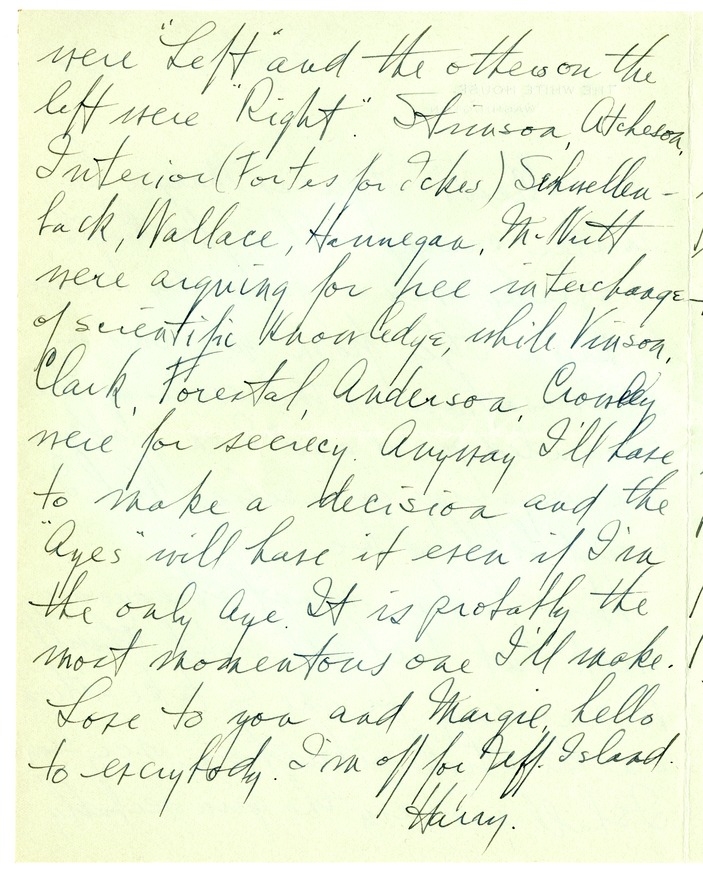 were "Left" and the others on the
left were "Right". Stimson, Atcheson,
Interior (Fortes for Ickes) Schwellen-
back, Wallace, Hannegan, McNutt
were arguing for free interchange
of scientific knowledge, while Vinson,
Clark, Forestal, Anderson, Crowley
were for secrecy. Anyway I'll have
to make a decision and the
"Ayes" will have it even if I'm
the only Aye. It is probably the
most momentous one I'll make.
Love to you and Margie, hello
to everybody. I'm off for Jeff. Island.
Harry.